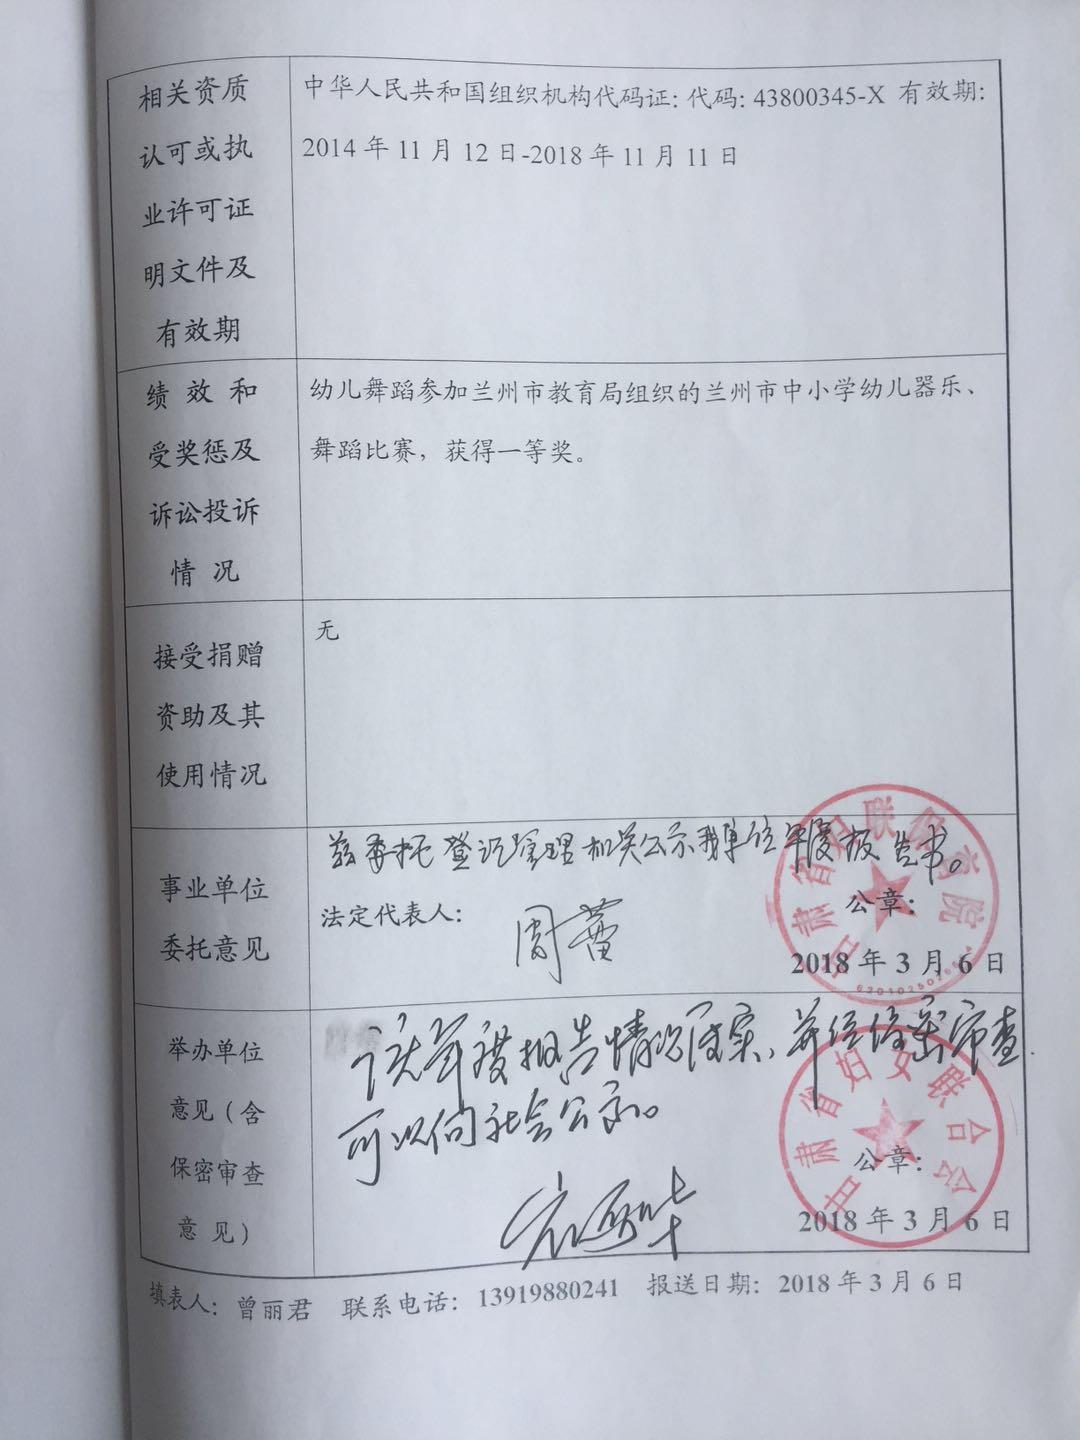 相关资质
认可或执
业许可证
明文件及
有效期
中华人民共和国组织机构代码证：代码：43800345-X 有效期：
2014 年 11 月 12 日-2018 年 11 月 11 日
绩 效 和
受奖惩及
诉讼投诉
情 况
幼儿舞蹈参加兰州市教育局组织的兰州市中小学幼儿器乐、
舞蹈比赛，获得一等奖。
接受捐赠
资助及其
使用情况
无
事业单位
委托意见
兹委托登记管理机关公示我单位年度报告书。
法定代表人：
周蕾
公章：
2018 年 3 月 6 日
甘肃省妇联保育院
举办单位
意见（含
保密审查
意 见）
该年度报告情况属实，并经保密审查
可以向社会公示。
公章：
2018 年 3 月 6 日
甘肃省妇女联合会
填表人：曾丽君 联系电话：13919880241 报送日期：2018 年 3 月 6 日